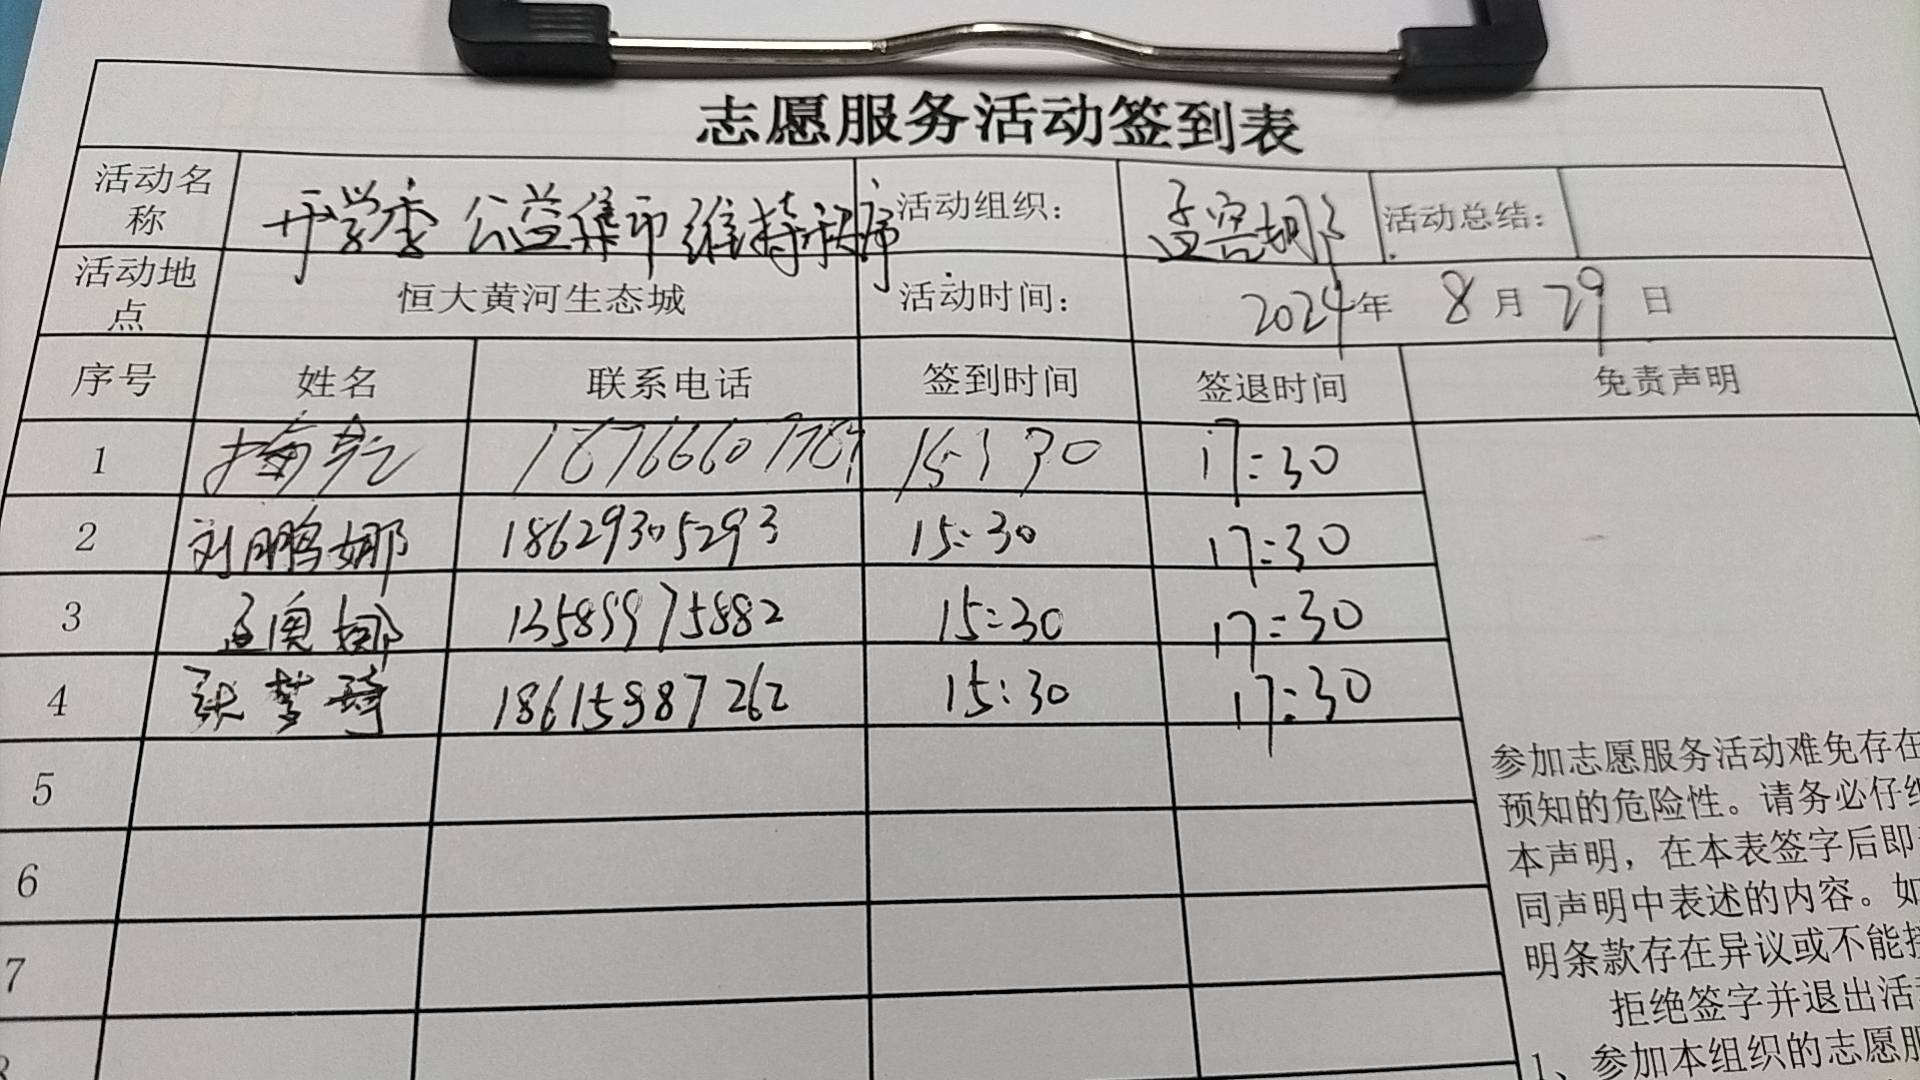 志愿服务活动签到表
活动名称 开学季 公益集市维持秩序 活动组织： 孟 娜 活动总结：
活动地点 恒大黄河生态城 活动时间： 2024年 8月29日
序号 姓名 联系电话 签到时间 签退时间 免责声明
1 15:30 17:30
2 刘鹏娜 18629305293 15:30 17:30
3 孟奥娜 13589975882 15:30 17:30
4 张梦琦 18615987262 15:30 17:30
5
6
7
参加志愿服务活动难免存在
预知的危险性。请务必仔细
本声明，在本表签字后即
同声明中表述的内容。如
明条款存在异议或不能接
拒绝签字并退出活动
1、参加本组织的志愿服